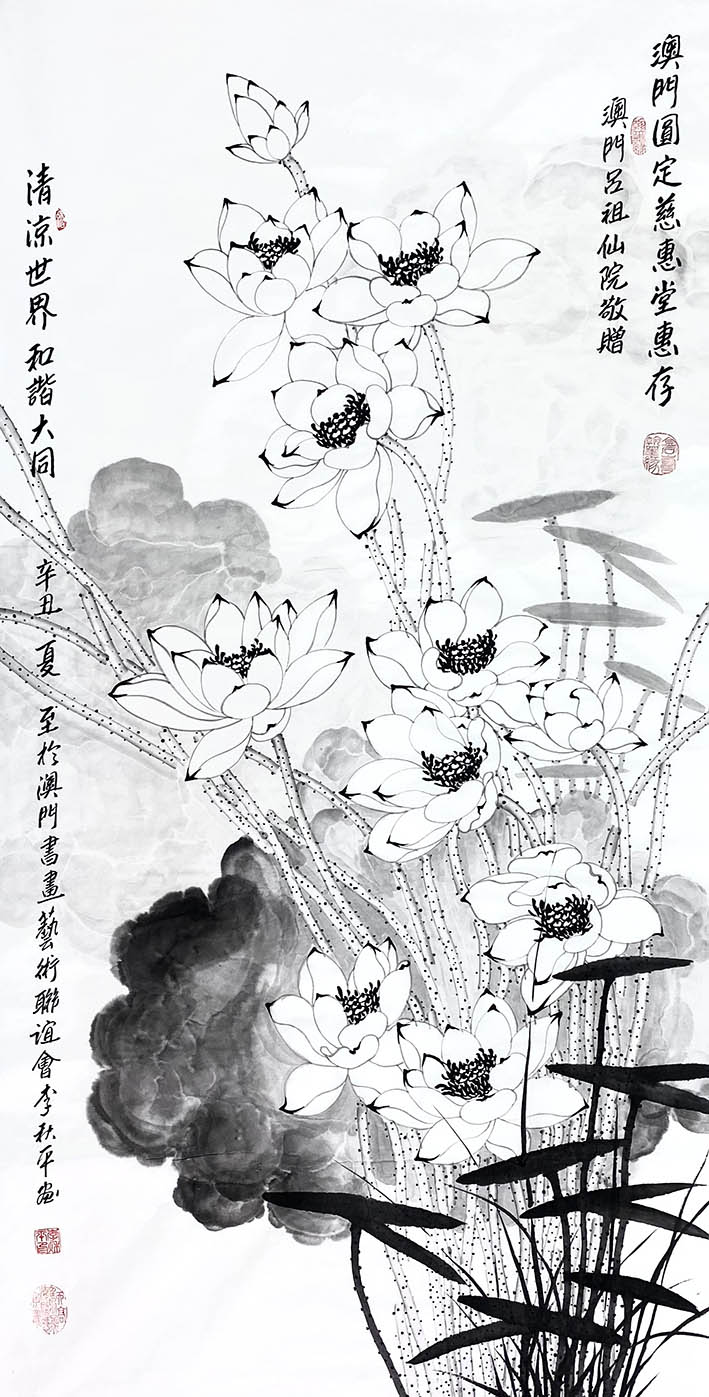 澳門圓定慈惠堂惠存
澳門呂祖仙院敬贈
清凉世界和諧大同
辛丑夏至於澳門書畫藝術聯誼會李秋平畫